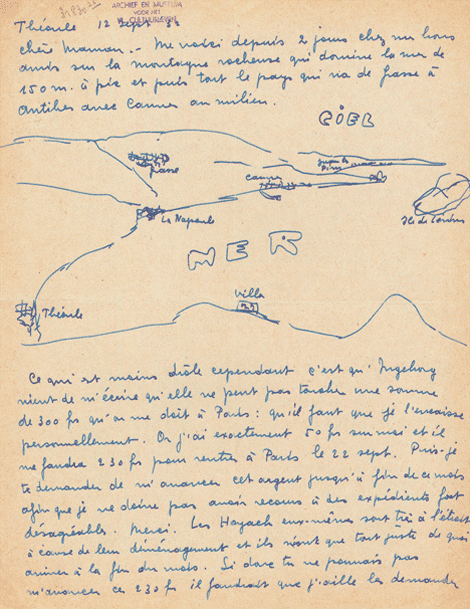 ARCHIEF EN MUSEUM
VOOR HET
VL. CULTUURLEVEN
Théoule 12 Sept 32
chère Maman. - Me voici depuis 2 jours chez mes bons
amis sur la montagne rocheuse qui domine la mer de
150 m. à pic et puis tout le pays qui va de Grasse à
Antibes avec Cannes au milieu.
CIEL
Grasse
Cannes
La Napoule
Ile de Lérins
MER
Villa
Théoule
Ce qui est moins drôle cependant c'est qu'Ingeborg
vient de m'écrire qu'elle ne peut pas toucher une somme
de 300 fr qu'on me doit à Paris : qu'il faut que je l'encaisse
personnellement. Or j'ai exactement 50 fr sur moi et il
me faudra 230 fr pour rentrer à Paris le 22 sept. Puis-je
te demander de m'avancer cet argent jusqu'à fin de ce mois
afin que je ne doive pas avoir recours à des expédients fort
désagréables. Merci. Les Hayach eux-mêmes sont très à l'étroit
à cause de leur déménagement et ils n'ont que tout juste de quoi
arriver à la fin du mois. Si donc tu ne pouvais pas
m'avancer ces 230 fr il faudrait que j'aille les demander